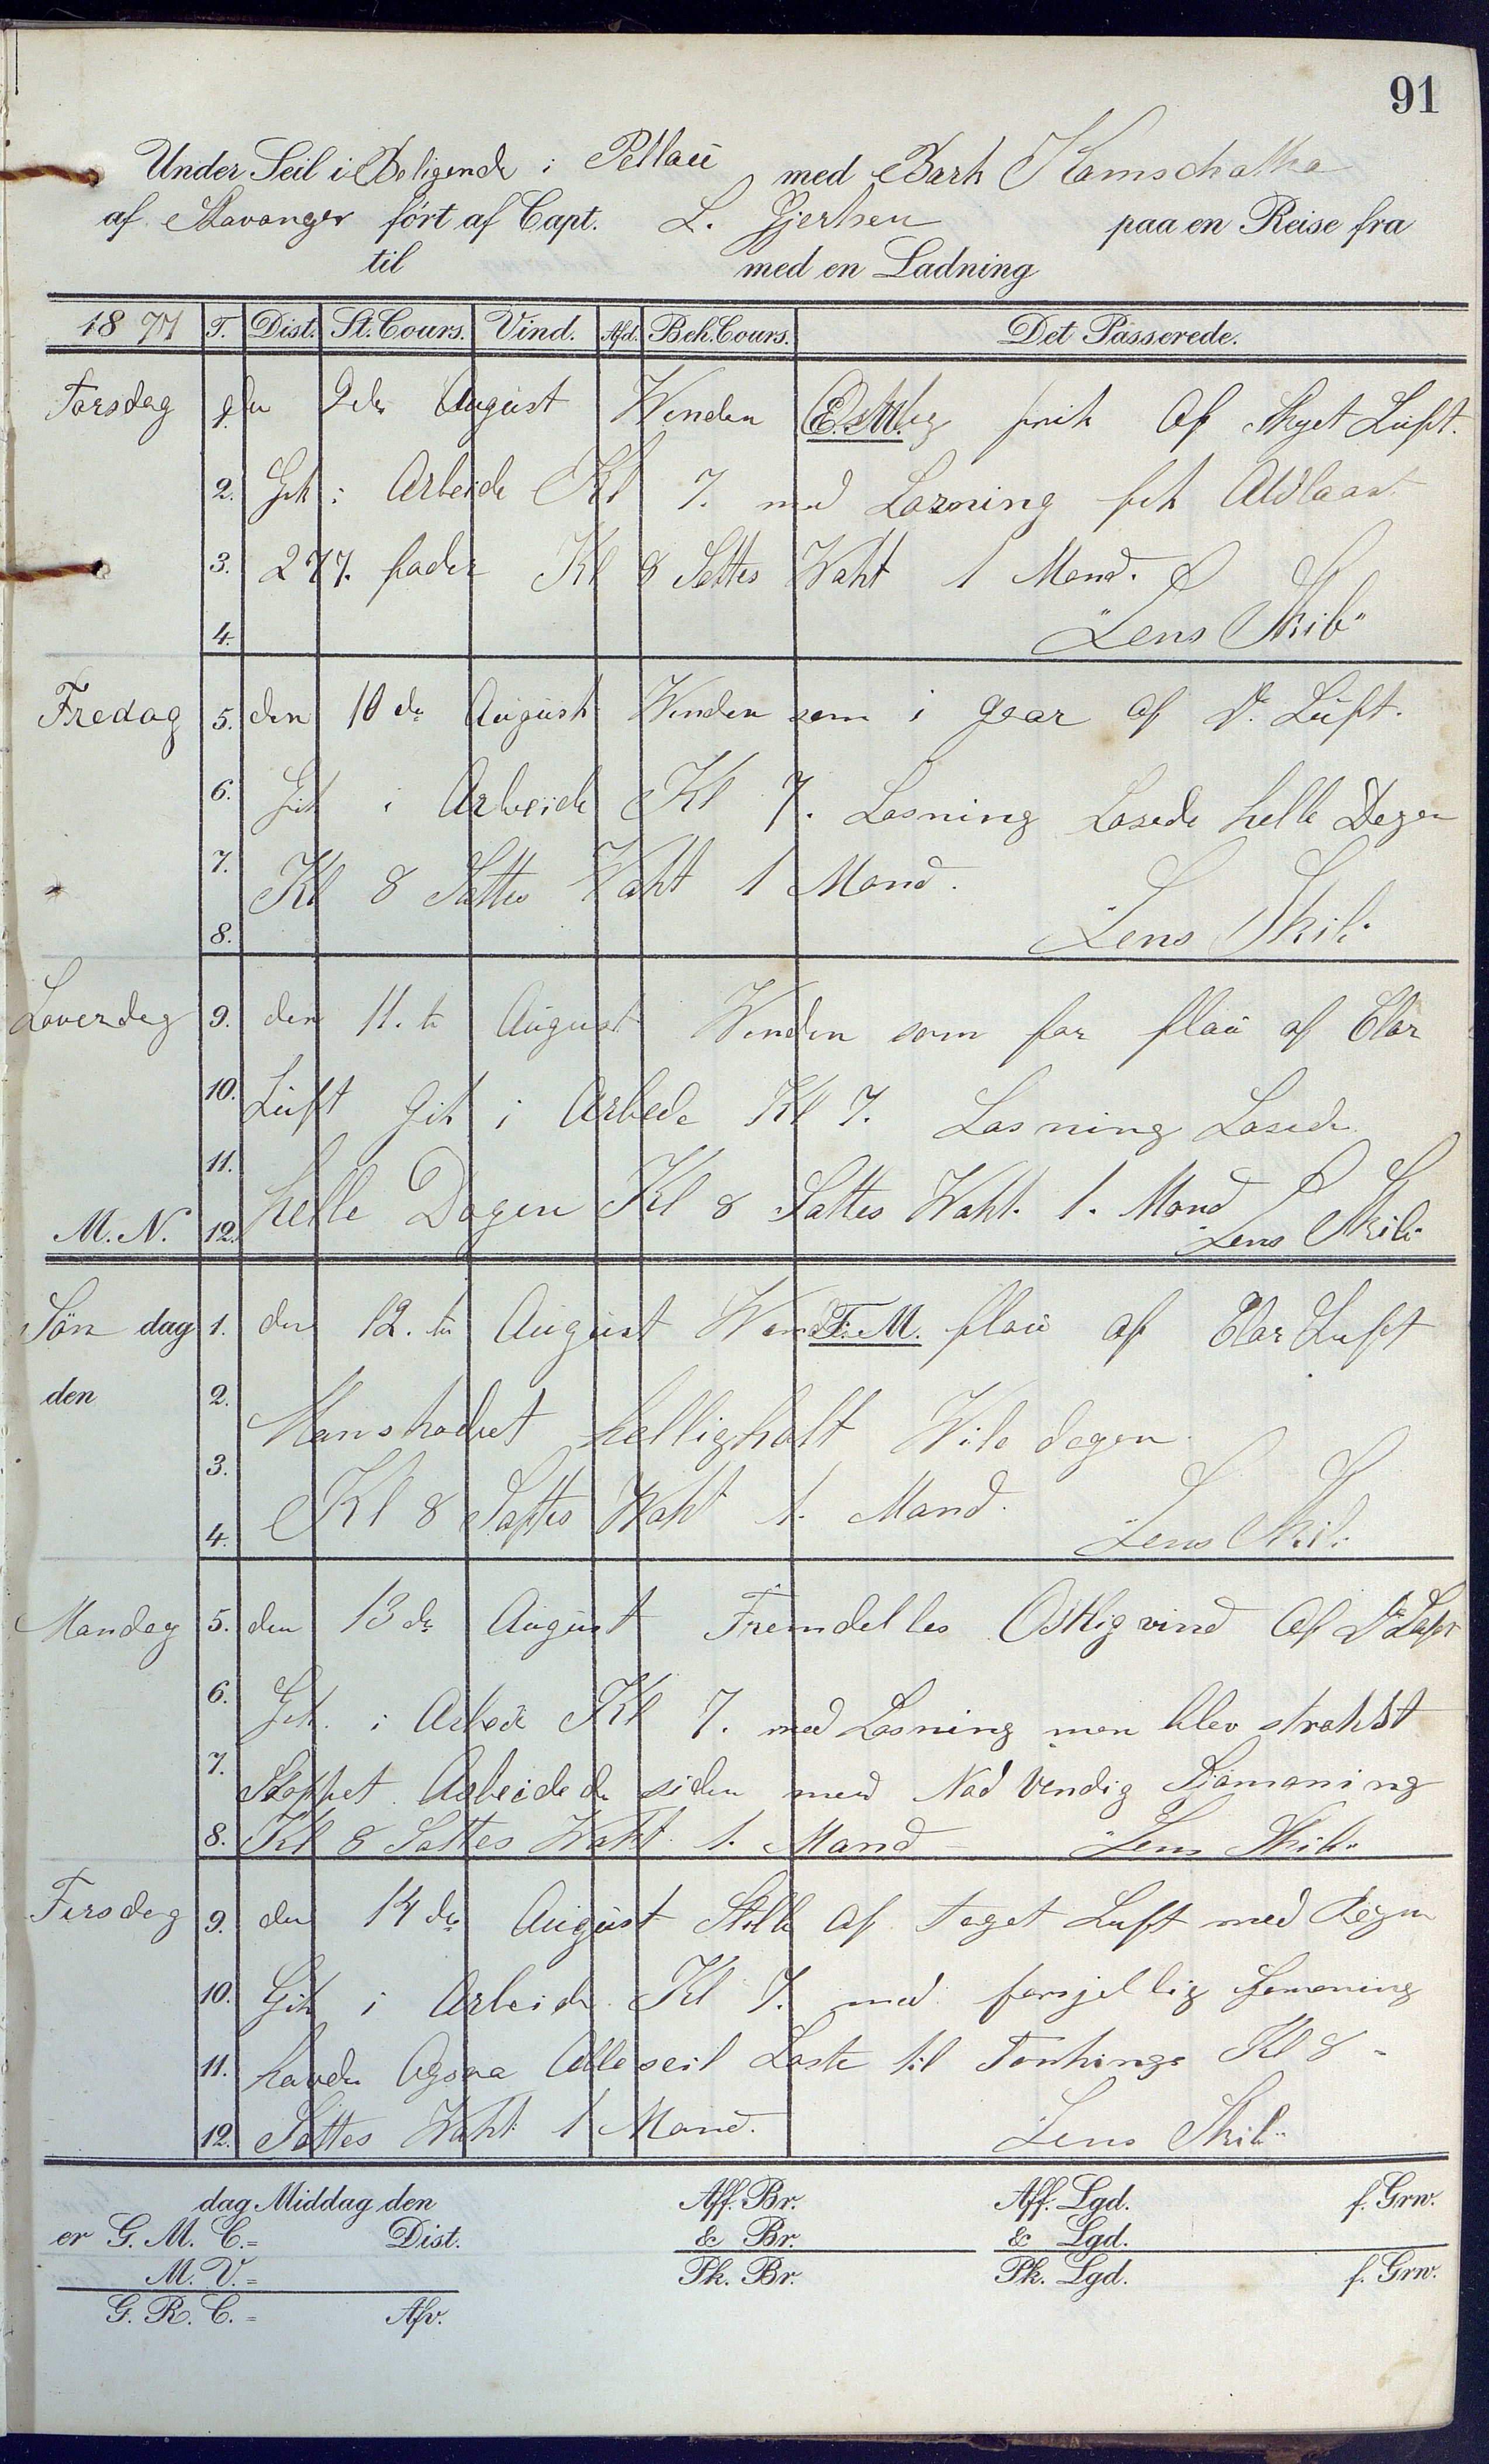 91
Under Seil i Beligende i Pellaú med Bark Kamschatka
af Stavanger ført af Capt. L. Gjertsen paa en Reise fra
til med en Ladning
1877 T. Dist. St. Cours. Vind. Afd. Beh. Cours. Det Passerede.
Torsdag 1. den 9de August Winden E.M. Østlig frisk Af Skyet Luft.
2. Gik i Arbeide Kl 7. med Losning fik Udlaast
3. 277. fade Kl 8 Sattes Waht 1 Mand.
4. "Lens Skib"
Fredag 5. den 10de August Winden som i gaar af Do. Luft.
6. Gik i Arbeide Kl 7. Losning Losede helle Dagen
7. Kl 8 Sattes Waht 1 Mand.
8. "Lens Skib"
Loverdag 9. den 11.te August Winden som for flaú af Klar
10. Luft Gik i Arbede Kl 7. Losning Losede
11. helle Dagen Kl 8 Sattes Waht. 1. Mand
M. N. 12. "Lens Skib"
Søndag 1. den 12.te August Wind F. M. flaú af Klar Luft
den 2. Manskabet helligholt Wile dagen
3. Kl 8 Sattes Waht 1. Mand.
4. "Lens Skib"
Mandag 5. den 13de August Fremdelles Ostligvind Af Do Luft
6. Gik i Arbede Kl 7. med Losning men blev strakst
7. Stoppet Arbeidede siden med Nødvendig Sjømaning
8. Kl 8 Sattes Waht 1. Mand "Lens Skib"
Tirsdag 9. den 14de August Stille af taget Luft med Regn
10. Gik i Arbeide Kl 7. med forsjellig Sømaning
11. havde Ogsaa Alle seil Løste til Tørkings Kl 8
12. Sattes Waht 1 Mand. "Lens Skib"
dag Middag den Aff. Br. Aff. Lgd. f. Grw.
er G. M. C. = Dist. & Br. & Lgd.
M. V. = Pk. Br. Pk. Lgd. f. Grw.
G. R. C. = Afv.